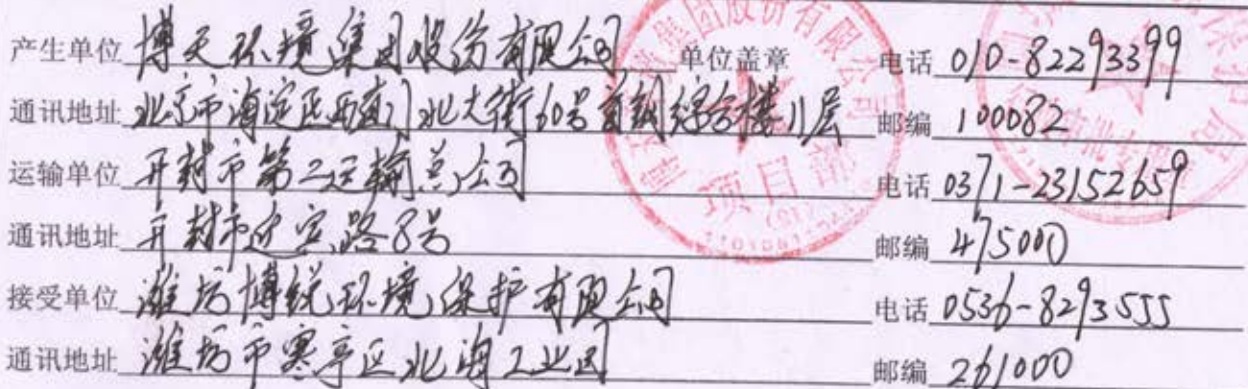 产生单位 博天环境集团股份有限公司 单位盖章 电话 010-82293399
通讯地址 北京市海淀区西直门北大街60号首钢综合楼11层 邮编 100082
运输单位 开封市第二运输总公司 电话 0371-23152659
通讯地址 开封市边宫路8号 邮编 475000
接受单位 潍坊博锐环境保护有限公司 电话 0536-8293555
通讯地址 潍坊市寒亭区北海工业园 邮编 261000
集团股份有限公司
项目部